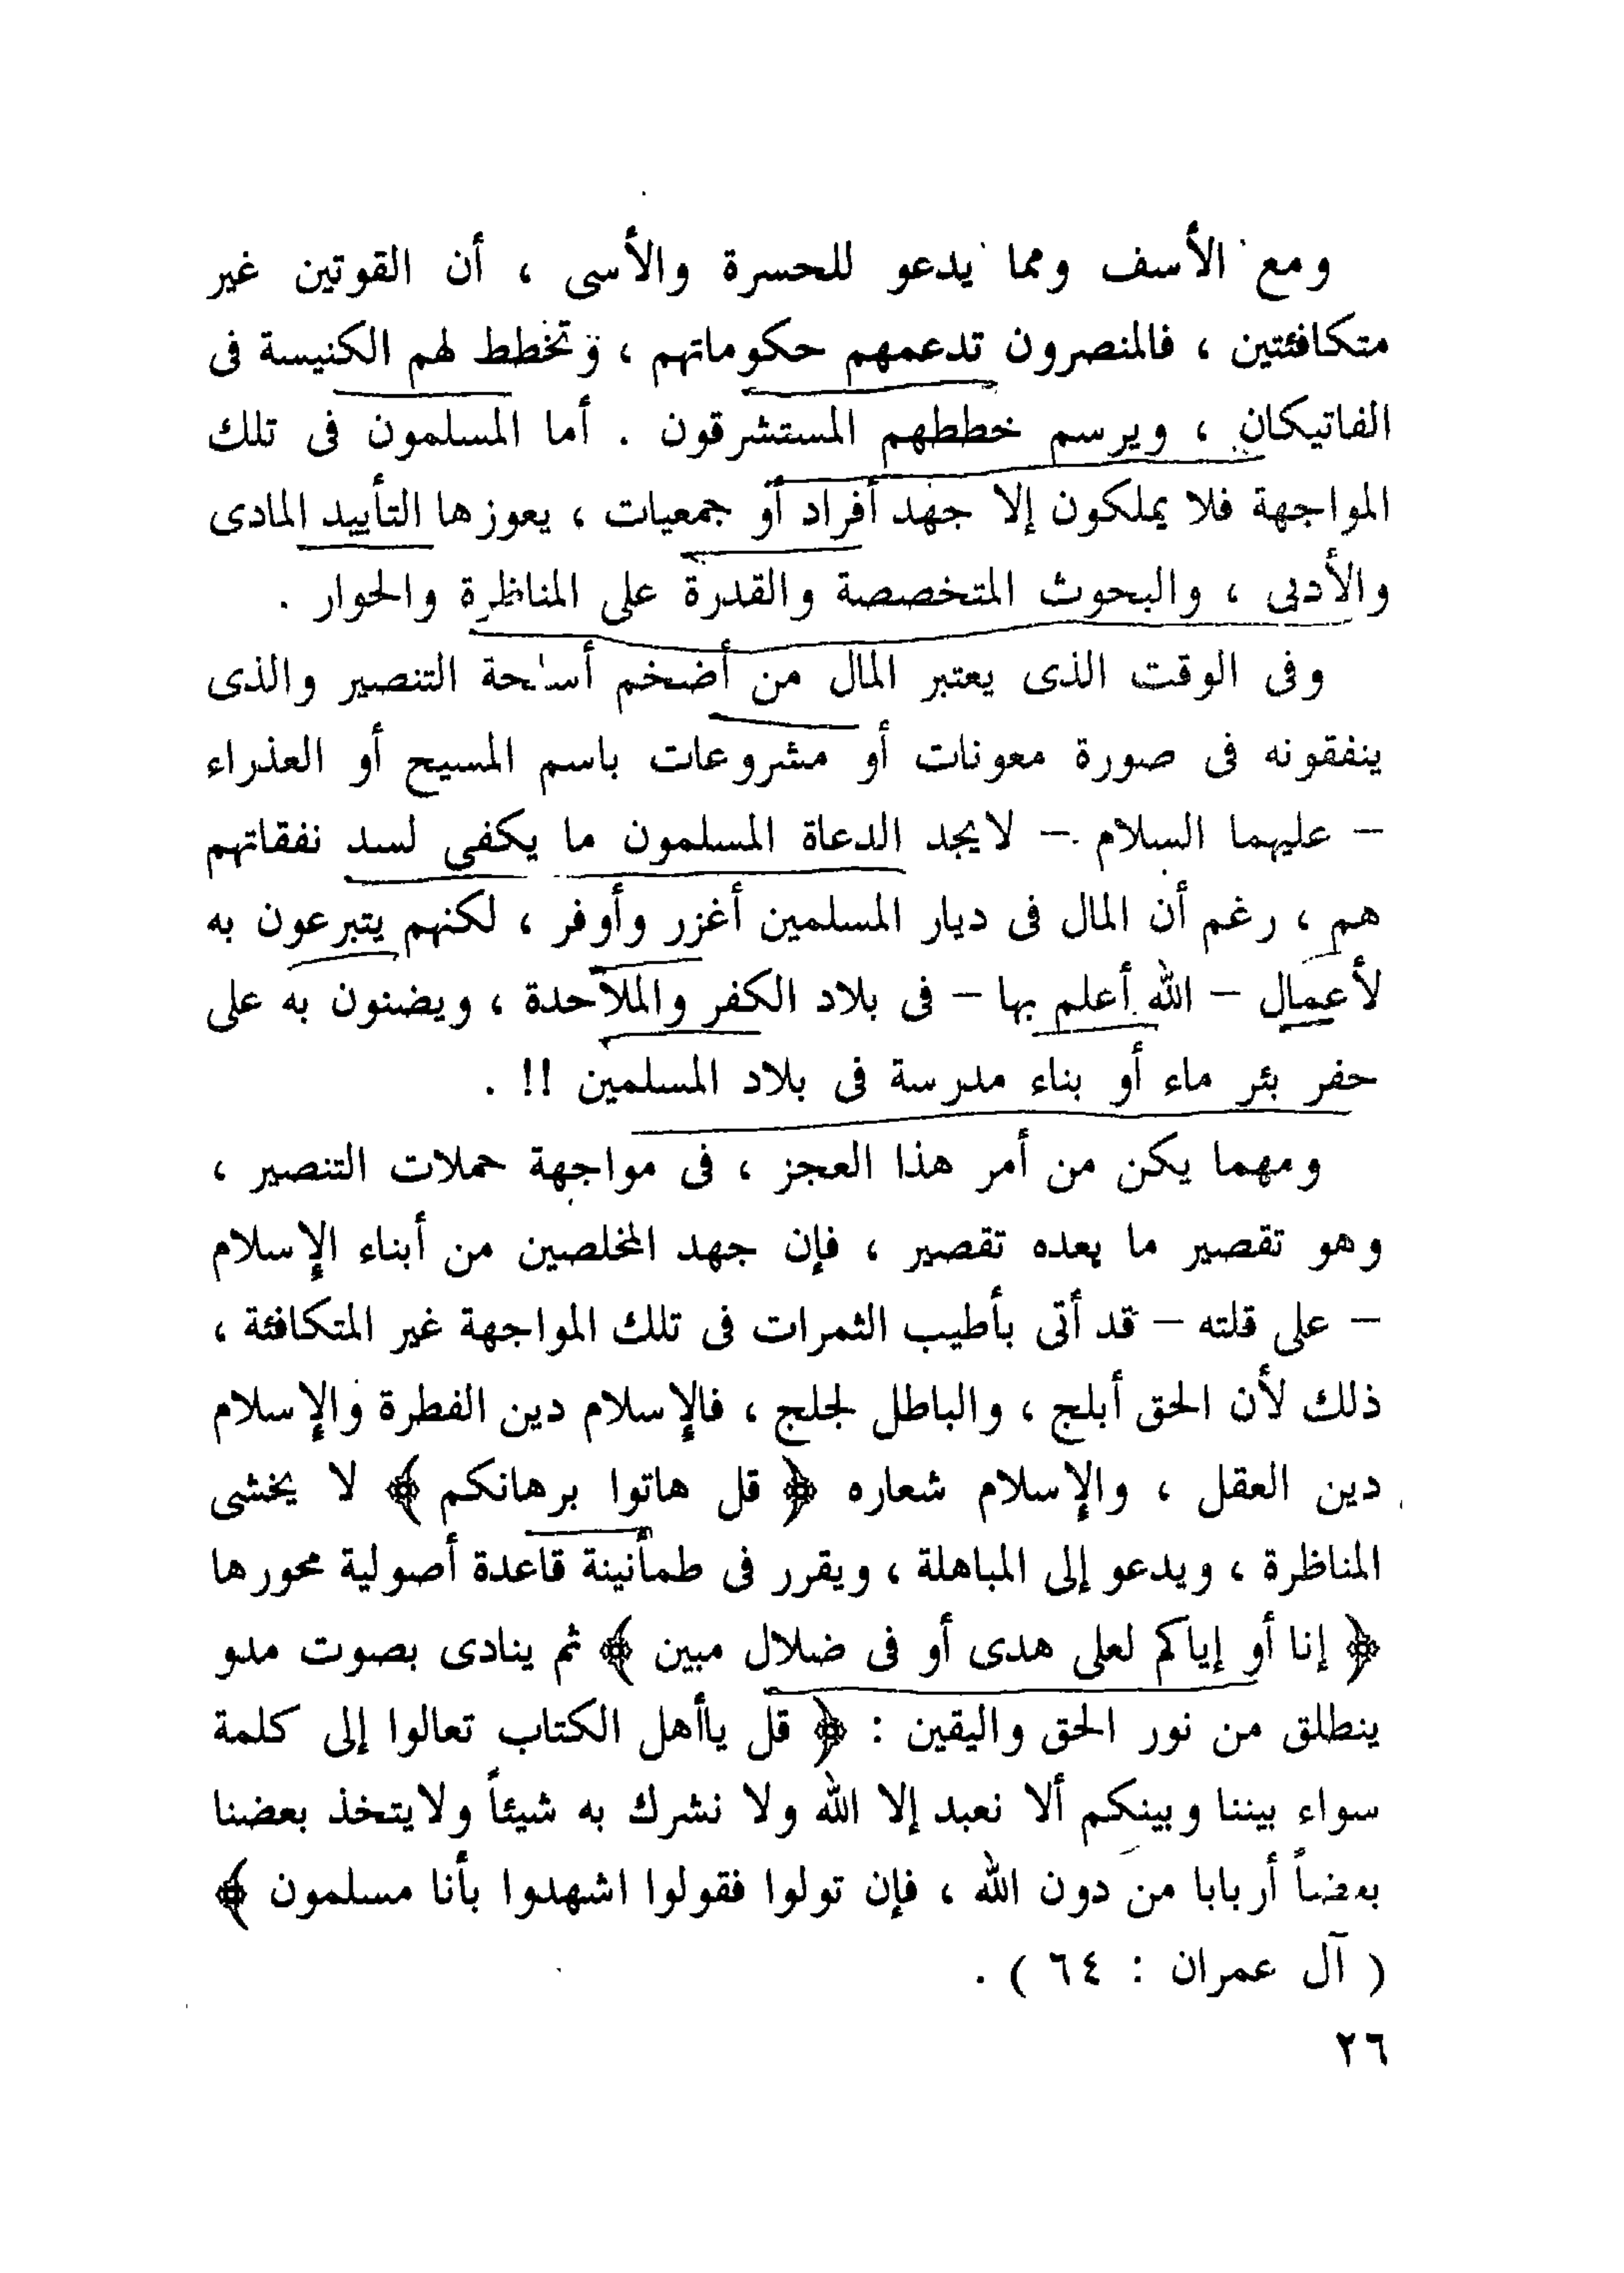 ومع الأسف ومما يدعو للحسرة والأسى ، أن القوتين غير
متكافئتين ، فالمنصرون تدعمهم حكوماتهم ، وتخطط لهم الكنيسة فى
الفاتيكان ، ويرسم خططهم المستشرقون . أما المسلمون فى تلك
المواجهة فلا يملكون إلا جهد أفراد أو جمعيات ، يعوزها التأييد المادى
والأدبى ، والبحوث المتخصصة والقدرة على المناظرة والحوار .
وفى الوقت الذى يعتبر المال من أضخم أسلحة التنصير والذى
ينفقونه فى صورة معونات أو مشروعات باسم المسيح أو العذراء
– عليهما السلام – لايجد الدعاة المسلمون ما يكفى لسد نفقاتهم
هم ، رغم أن المال فى ديار المسلمين أغزر وأوفر ، لكنهم يتبرعون به
لأعمال – الله أعلم بها – فى بلاد الكفر والملاحدة ، ويضنون به على
حفر بئر ماء أو بناء مدرسة فى بلاد المسلمين !! .
ومهما يكن من أمر هذا العجز ، فى مواجهة حملات التنصير ،
وهو تقصير ما بعده تقصير ، فإن جهد المخلصين من أبناء الإسلام
– على قلته – قد أتى بأطيب الثمرات فى تلك المواجهة غير المتكافئة ،
ذلك لأن الحق أبلج ، والباطل لجلج ، فالإسلام دين الفطرة والإسلام
دين العقل ، والإسلام شعاره ﴿ قل هاتوا برهانكم ﴾ لا يخشى
المناظرة ، ويدعو إلى المباهلة ، ويقرر فى طمأنينة قاعدة أصولية محورها
﴿ إنا أو إياكم لعلى هدى أو فى ضلال مبين ﴾ ثم ينادى بصوت مدو
ينطلق من نور الحق واليقين : ﴿ قل ياأهل الكتاب تعالوا إلى كلمة
سواء بيننا وبينكم ألا نعبد إلا الله ولا نشرك به شيئاً ولايتخذ بعضنا
بعضاً أربابا من دون الله ، فإن تولوا فقولوا اشهدوا بأنا مسلمون ﴾
( آل عمران : ٦٤ ) .
٢٦